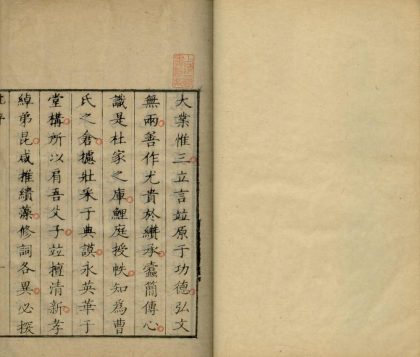 大業惟三立言竝原于功德弘文
無兩善作尤貴於纘承蠹簡傳心
識是杜家之庫鯉庭授帙知為曹
氏之倉攄壯采于典謨永英華于
堂構所以眉吾父子竝擅清新孝
綽弟昆咸推繢藻修詞各異必探